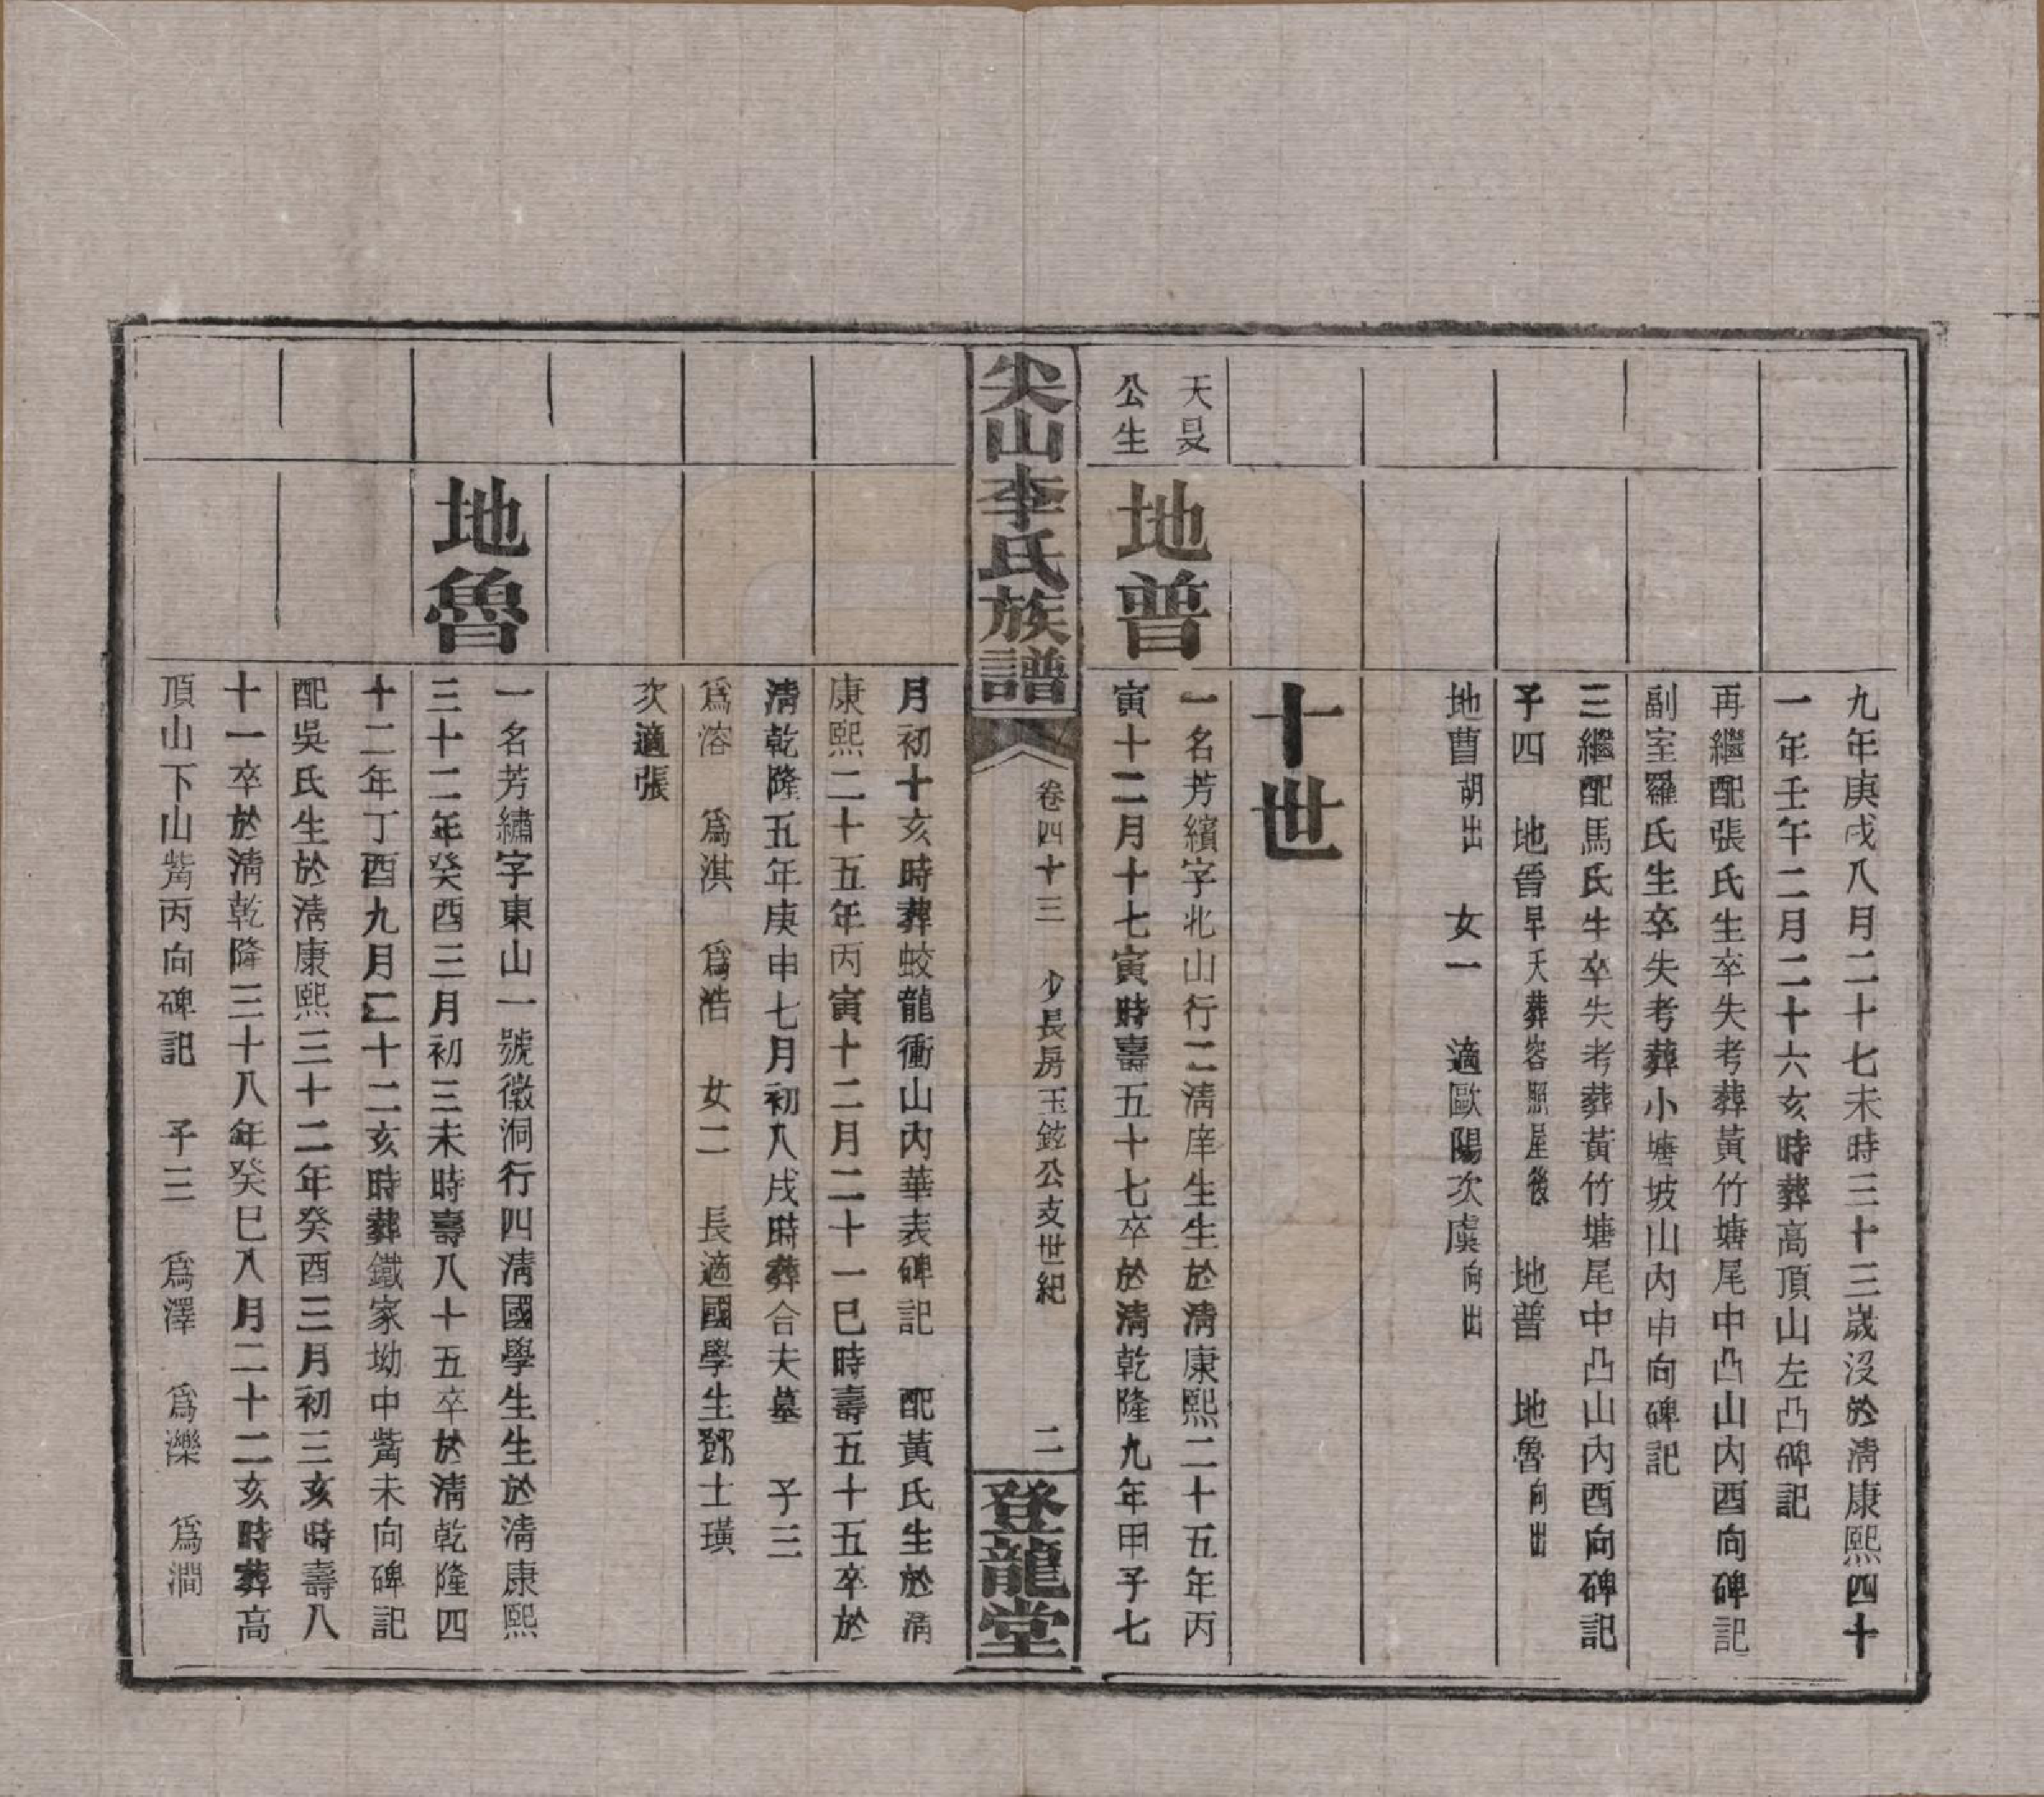 九年庚戌八月二十七未時三十三歲沒於清康熙四十
一年壬午二月二十六亥時葬高頂山左凸碑記
再繼配張氏生卒失考葬黃竹塘尾中凸山內酉向碑記
副室羅氏生卒失考葬小塘坡山內申向碑記
三繼配馬氏生卒失考葬黃竹塘尾中凸山內酉向碑記
子四　地晉早夭葬容照屋後　地普　地魯向出
地曹胡出　女一　適歐陽次虞向出
十世
天旻
公生
地普
一名芳繽字北山行二清庠生生於清康熙二十五年丙
寅十二月十七寅時壽五十七卒於清乾隆九年甲子七
尖山李氏族譜
卷四十三　少長房玉鉉公支世紀　二
登龍堂
月初十亥時葬蛟龍衝山內華表碑記　配黃氏生於清
康熙二十五年丙寅十二月二十一巳時壽五十五卒於
清乾隆五年庚申七月初八戌時葬合夫墓　子三
為溶　為淇　為浩　女二　長適國學生鄧士璜
次適張
地魯
一名芳繡字東山一號徵洞行四清國學生生於清康熙
三十二年癸酉三月初三未時壽八十五卒於清乾隆四
十二年丁酉九月二十二亥時葬鐵家坳中觜未向碑記
配吳氏生於清康熙三十二年癸酉三月初三亥時壽八
十一卒於清乾隆三十八年癸巳八月二十二亥時葬高
頂山下山觜丙向碑記　子三　為澤　為濼　為澗